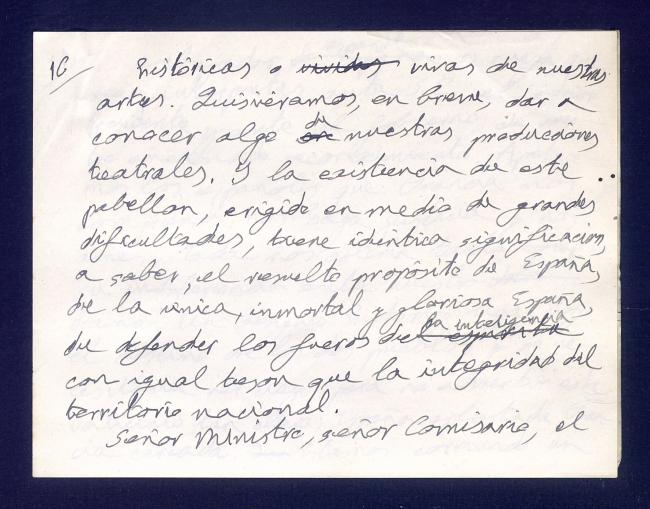 16/
históricas o vividas vivas de nuestras
artes. Quisiéramos, en breve, dar a
conocer algo en de nuestras producciones
teatrales. Y la existencia de este
pabellon, erigido en medio de grandes
dificultades, tiene identica significacion,
a saber, el resuelto propósito de España,
de la unica, inmortal y gloriosa España,
de defender los fueros del espiritu de la inteligencia
con igual teson que la integridad del
territorio nacional.
Señor Ministro, señor Comisario, el